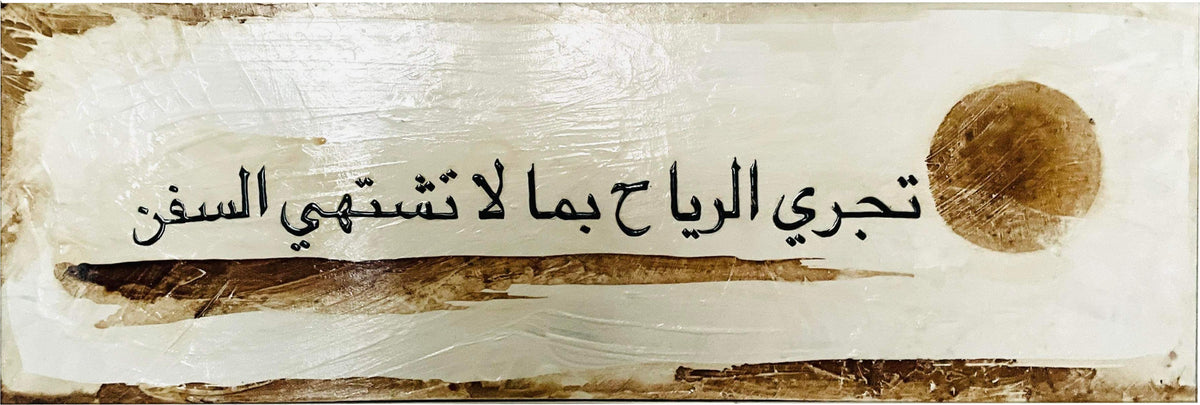 تجري الرياح بما لا تشتهي السفن